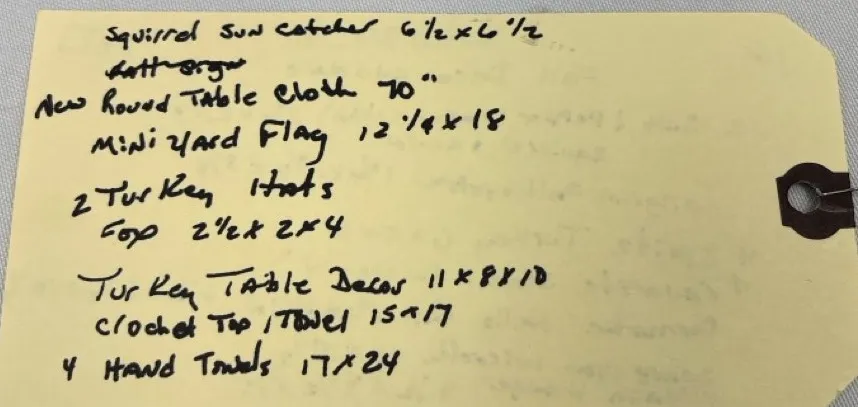 Squirrel Sun Catcher 6 1/2 x 6 1/2
New Round Table Cloth 70"
Mini Yard Flag 12 1/4 x 18
2 Turkey Hats
Fox 2 1/2 x 2 x 4
Turkey Table Decor 11 x 8 x 10
Crochet Top 1 Towel 15 x 17
4 Hand Towels 17 x 24